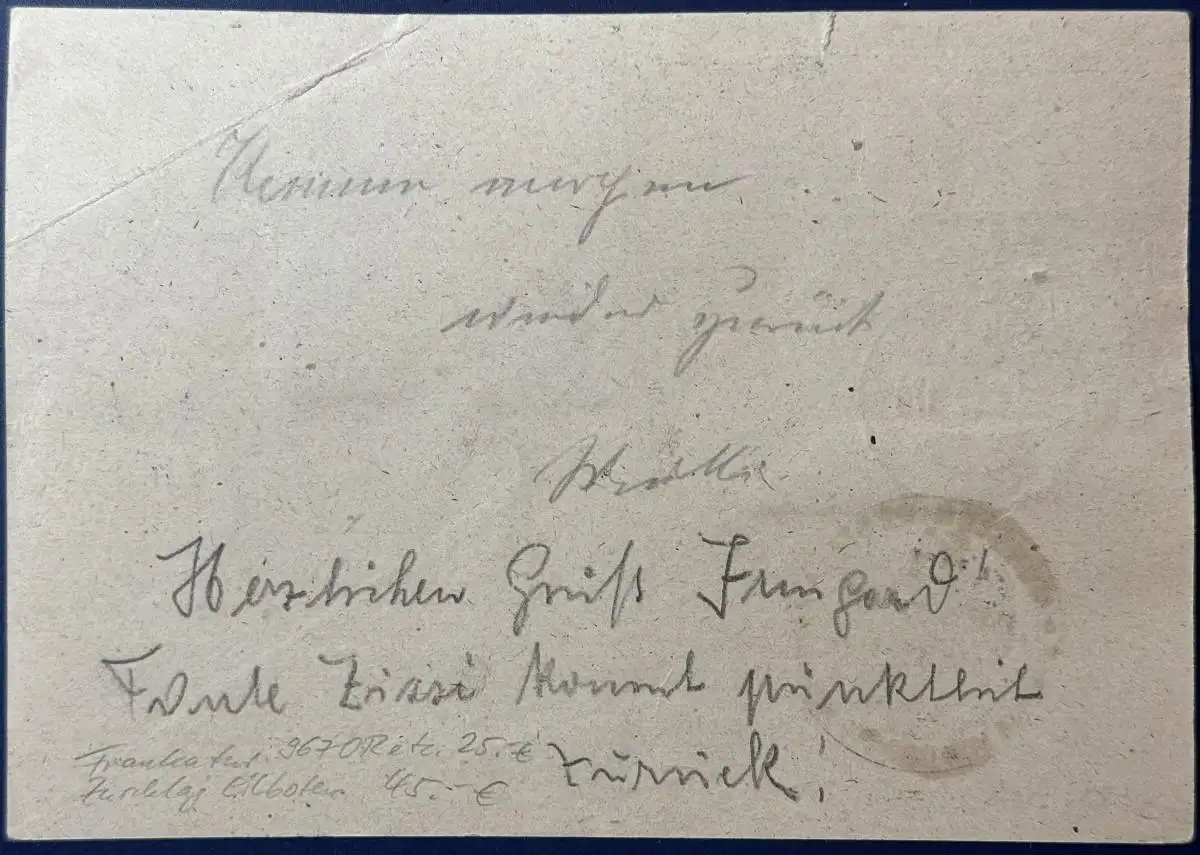 Komme morgen
wieder zurück
Herzlichen Gruß Irmgard!
Tante Zissi kommt pünktlich
zurück!
Frankatur 967 OR etc. 25.-€
Zuschlag Eilboten 45.-€